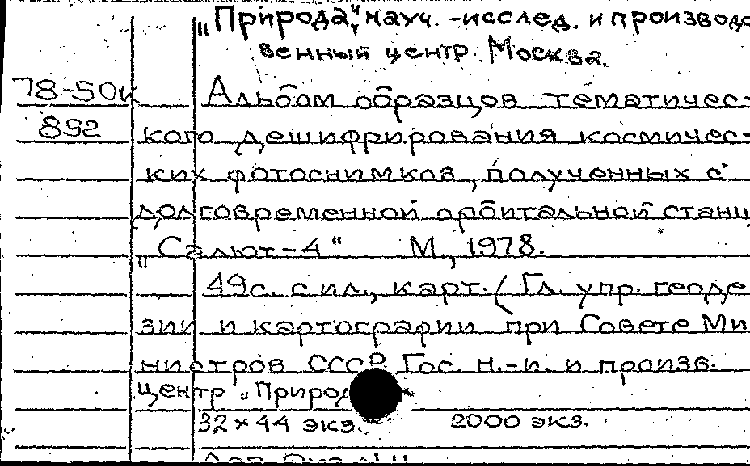 „Природа", науч.-исслед. и производс
венный центр. Москва.
78-50к
892
Альбом образцов тематичес-
кого дешифрирования космичес-
ких фотоснимков, полученных с
долговременной орбитальной станц
„Салют-4" М., 1978.
49с. с ил., карт. (Гл. упр. геоде
зии и картографии при Совете Ми
нистров СССР Гос. н.-и. и произв.
центр „Природ
32×44 экз. 2000 экз.